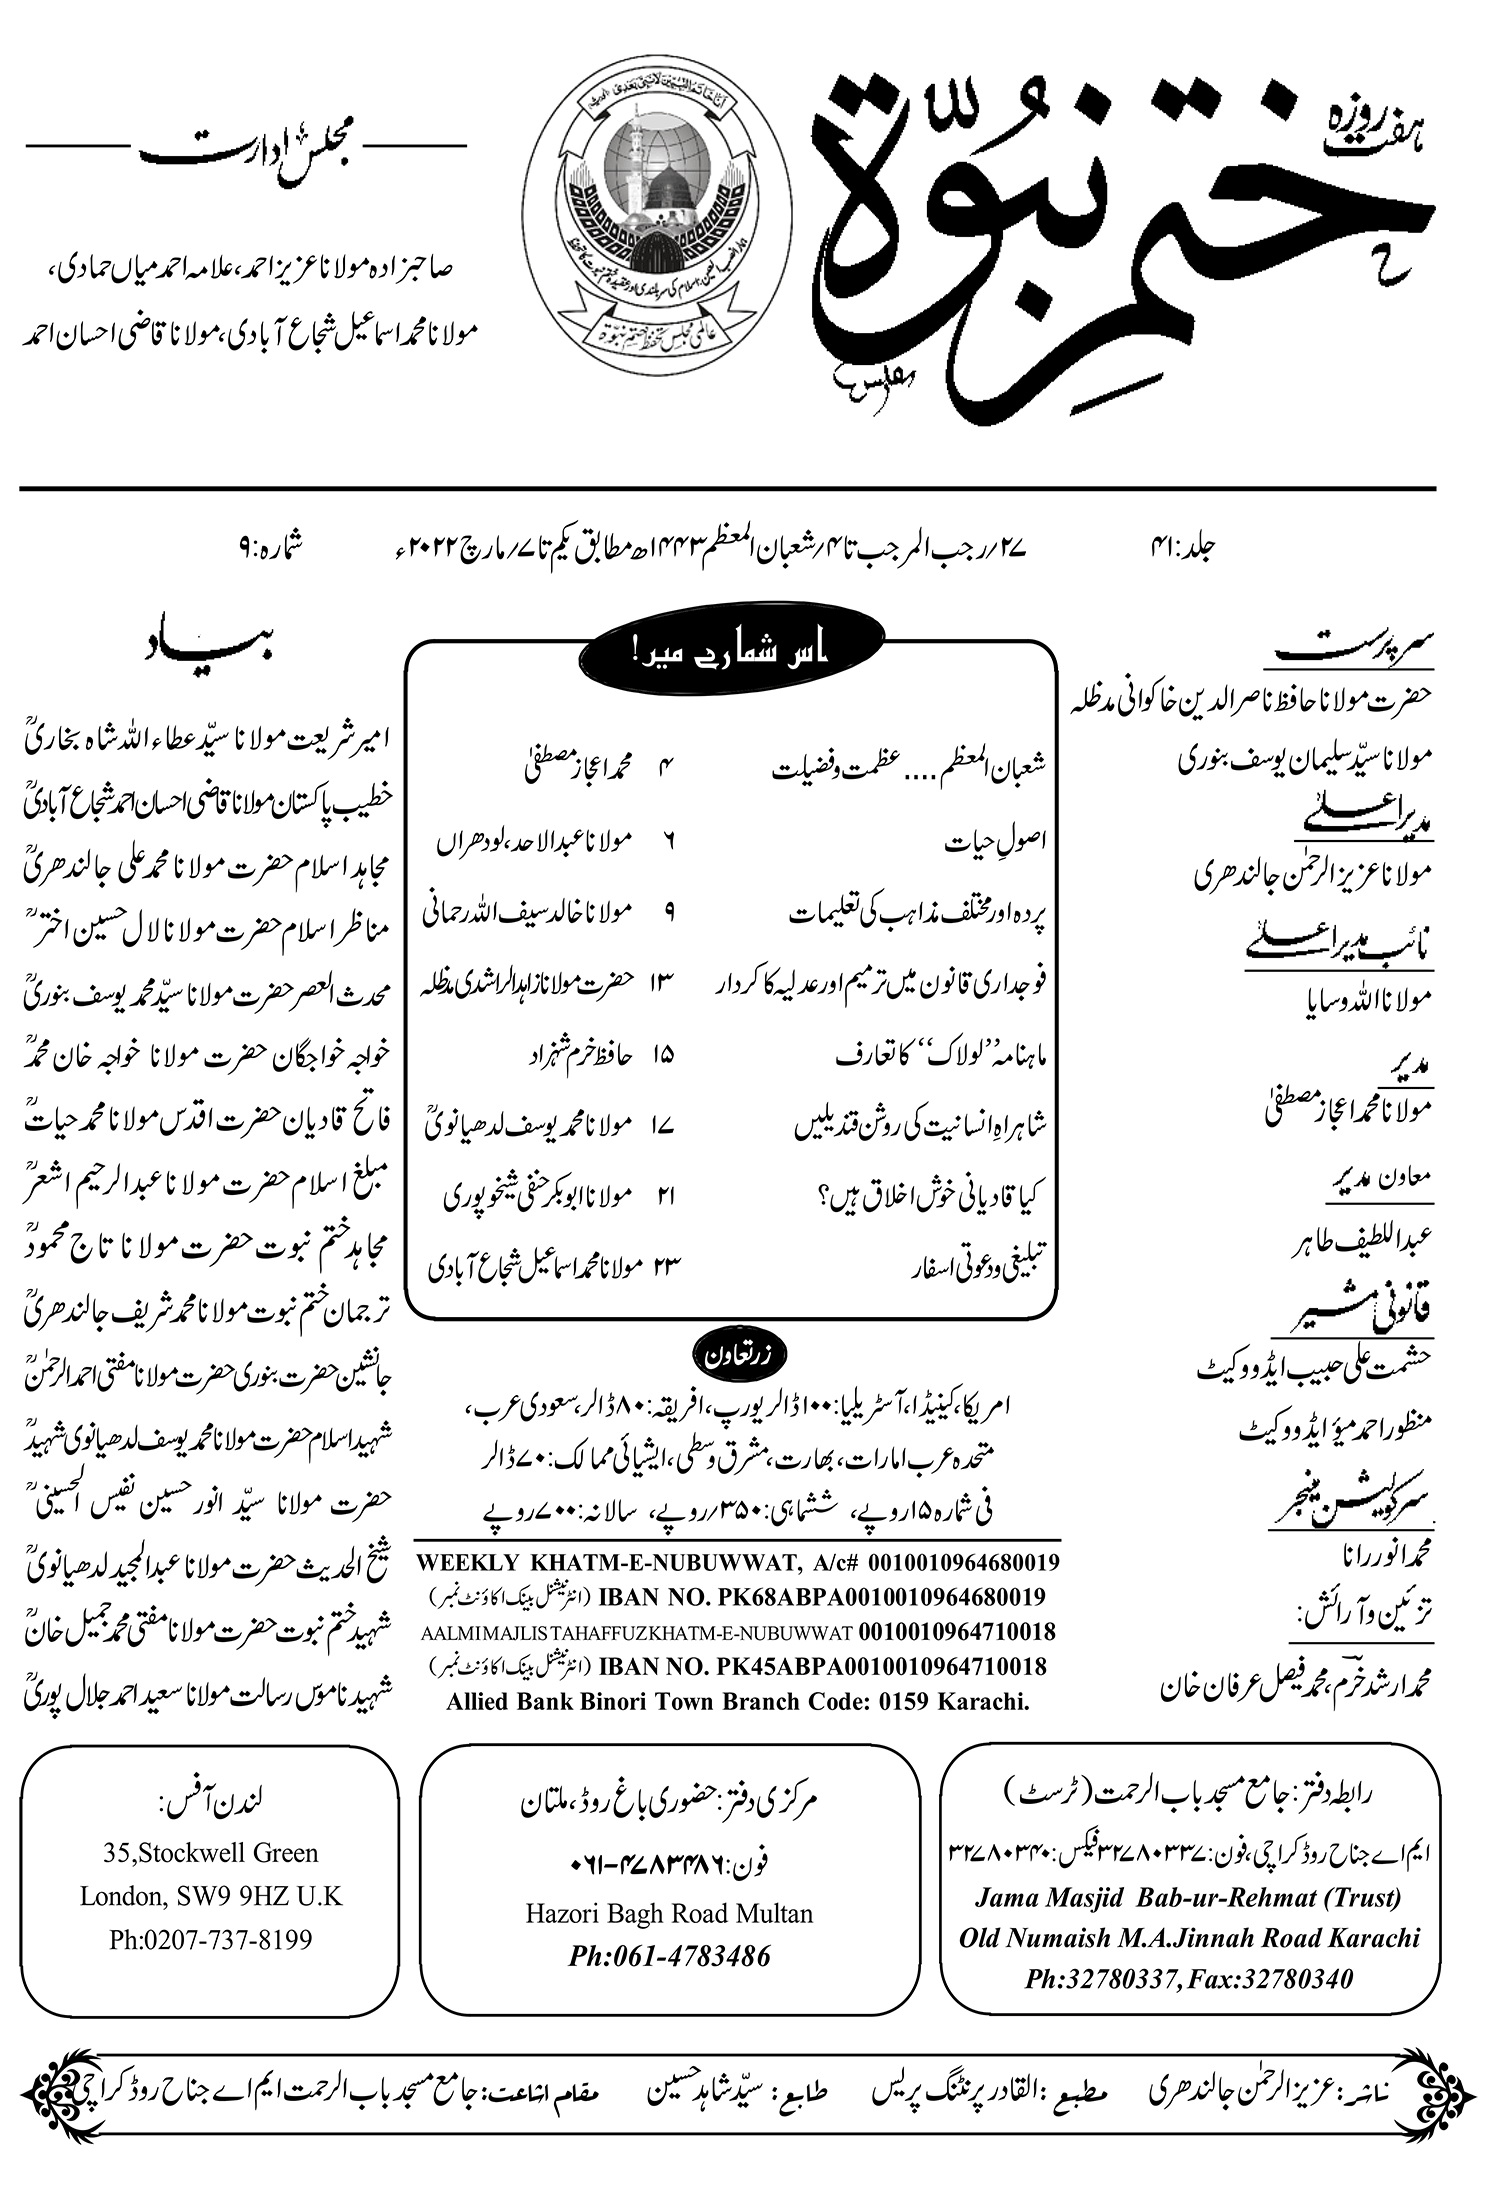 ہفت روزہ
ختم نبوّة
مجلس ادارت
صاحبزادہ مولانا عزیز احمد، علامہ احمد میاں حمادی،
مولانا محمد اسماعیل شجاع آبادی، مولانا قاضی احسان احمد
عالمی مجلس تحفظ ختم نبوة
جلد: ۴۱
۲۷؍رجب المرجب تا ۴؍شعبان المعظم ۱۴۴۳ھ مطابق یکم تا ۷؍مارچ ۲۰۲۲ء
شمارہ: ۹
سرپرست
حضرت مولانا حافظ ناصر الدین خاکوانی مدظلہ
مولانا سیّد سلیمان یوسف بنوری
مدیر اعلےٰ
مولانا عزیز الرحمٰن جالندھری
نائب مدیر اعلےٰ
مولانا اللہ وسایا
مدیر
مولانا محمد اعجاز مصطفیٰ
معاون مدیر
عبداللطیف طاہر
قانونی مشیر
حشمت علی حبیب ایڈووکیٹ
منظور احمد میؤ ایڈووکیٹ
سرکولیشن منیجر
محمد انور رانا
تزئین و آرائش:
محمد ارشد خرم، محمد فیصل عرفان خان
اس شمارے میں!
شعبان المعظم .... عظمت و فضیلت ۴ محمد اعجاز مصطفیٰ
اصولِ حیات ۶ مولانا عبدالاحد، لودھراں
پردہ اور مختلف مذاہب کی تعلیمات ۹ مولانا خالد سیف اللہ رحمانی
فوجداری قانون میں ترمیم اور عدلیہ کا کردار ۱۳ حضرت مولانا زاہد الراشدی مدظلہ
ماہنامہ ”لولاک“ کا تعارف ۱۵ حافظ خرم شہزاد
شاہراہِ انسانیت کی روشن قندیلیں ۱۷ مولانا محمد یوسف لدھیانویؒ
کیا قادیانی خوش اخلاق ہیں؟ ۲۱ مولانا ابوبکر حنفی شیخوپوری
تبلیغی و دعوتی اسفار ۲۳ مولانا محمد اسماعیل شجاع آبادی
زرتعاون
امریکا، کینیڈا، آسٹریلیا: ۱۰۰ ڈالر یورپ، افریقہ: ۸۰ ڈالر، سعودی عرب،
متحدہ عرب امارات، بھارت، مشرق وسطی، ایشیائی ممالک: ۷۰ ڈالر
فی شمارہ ۱۵ روپے، ششماہی: ۳۵۰؍روپے، سالانہ: ۷۰۰ روپے
WEEKLY KHATM-E-NUBUWWAT, A/c# 0010010964680019
IBAN NO. PK68ABPA0010010964680019 (انٹرنیشنل بینک اکاؤنٹ نمبر)
AALMI MAJLIS TAHAFFUZ KHATM-E-NUBUWWAT 0010010964710018
IBAN NO. PK45ABPA0010010964710018 (انٹرنیشنل بینک اکاؤنٹ نمبر)
Allied Bank Binori Town Branch Code: 0159 Karachi.
بیاد
امیر شریعت مولانا سیّد عطاء اللہ شاہ بخاریؒ
خطیب پاکستان مولانا قاضی احسان احمد شجاع آبادیؒ
مجاہد اسلام حضرت مولانا محمد علی جالندھریؒ
مناظر اسلام حضرت مولانا لال حسین اخترؒ
محدث العصر حضرت مولانا سیّد محمد یوسف بنوریؒ
خواجہ خواجگان حضرت مولانا خواجہ خان محمدؒ
فاتح قادیان حضرت اقدس مولانا محمد حیاتؒ
مبلغ اسلام حضرت مولانا عبدالرحیم اشعرؒ
مجاہد ختم نبوت حضرت مولانا تاج محمودؒ
ترجمان ختم نبوت مولانا محمد شریف جالندھریؒ
جانشین حضرت بنوری حضرت مولانا مفتی احمد الرحمٰنؒ
شہید اسلام حضرت مولانا محمد یوسف لدھیانوی شہیدؒ
حضرت مولانا سیّد انور حسین نفیس الحسینیؒ
شیخ الحدیث حضرت مولانا عبدالمجید لدھیانویؒ
شہید ختم نبوت حضرت مولانا مفتی محمد جمیل خانؒ
شہید ناموس رسالت مولانا سعید احمد جلال پوریؒ
رابطہ دفتر: جامع مسجد باب الرحمت (ٹرسٹ)
ایم اے جناح روڈ کراچی، فون: ۳۲۷۸۰۳۳۷ فیکس: ۳۲۷۸۰۳۴۰
Jama Masjid Bab-ur-Rehmat (Trust)
Old Numaish M.A.Jinnah Road Karachi
Ph:32780337, Fax:32780340
مرکزی دفتر: حضوری باغ روڈ، ملتان
فون: ۰۶۱-۴۷۸۳۴۸۶
Hazori Bagh Road Multan
Ph:061-4783486
لندن آفس:
35,Stockwell Green
London, SW9 9HZ U.K
Ph:0207-737-8199
ناشر: عزیز الرحمٰن جالندھری مطبع: القادر پرنٹنگ پریس طابع: سیّد شاہد حسین مقام اشاعت: جامع مسجد باب الرحمت ایم اے جناح روڈ کراچی